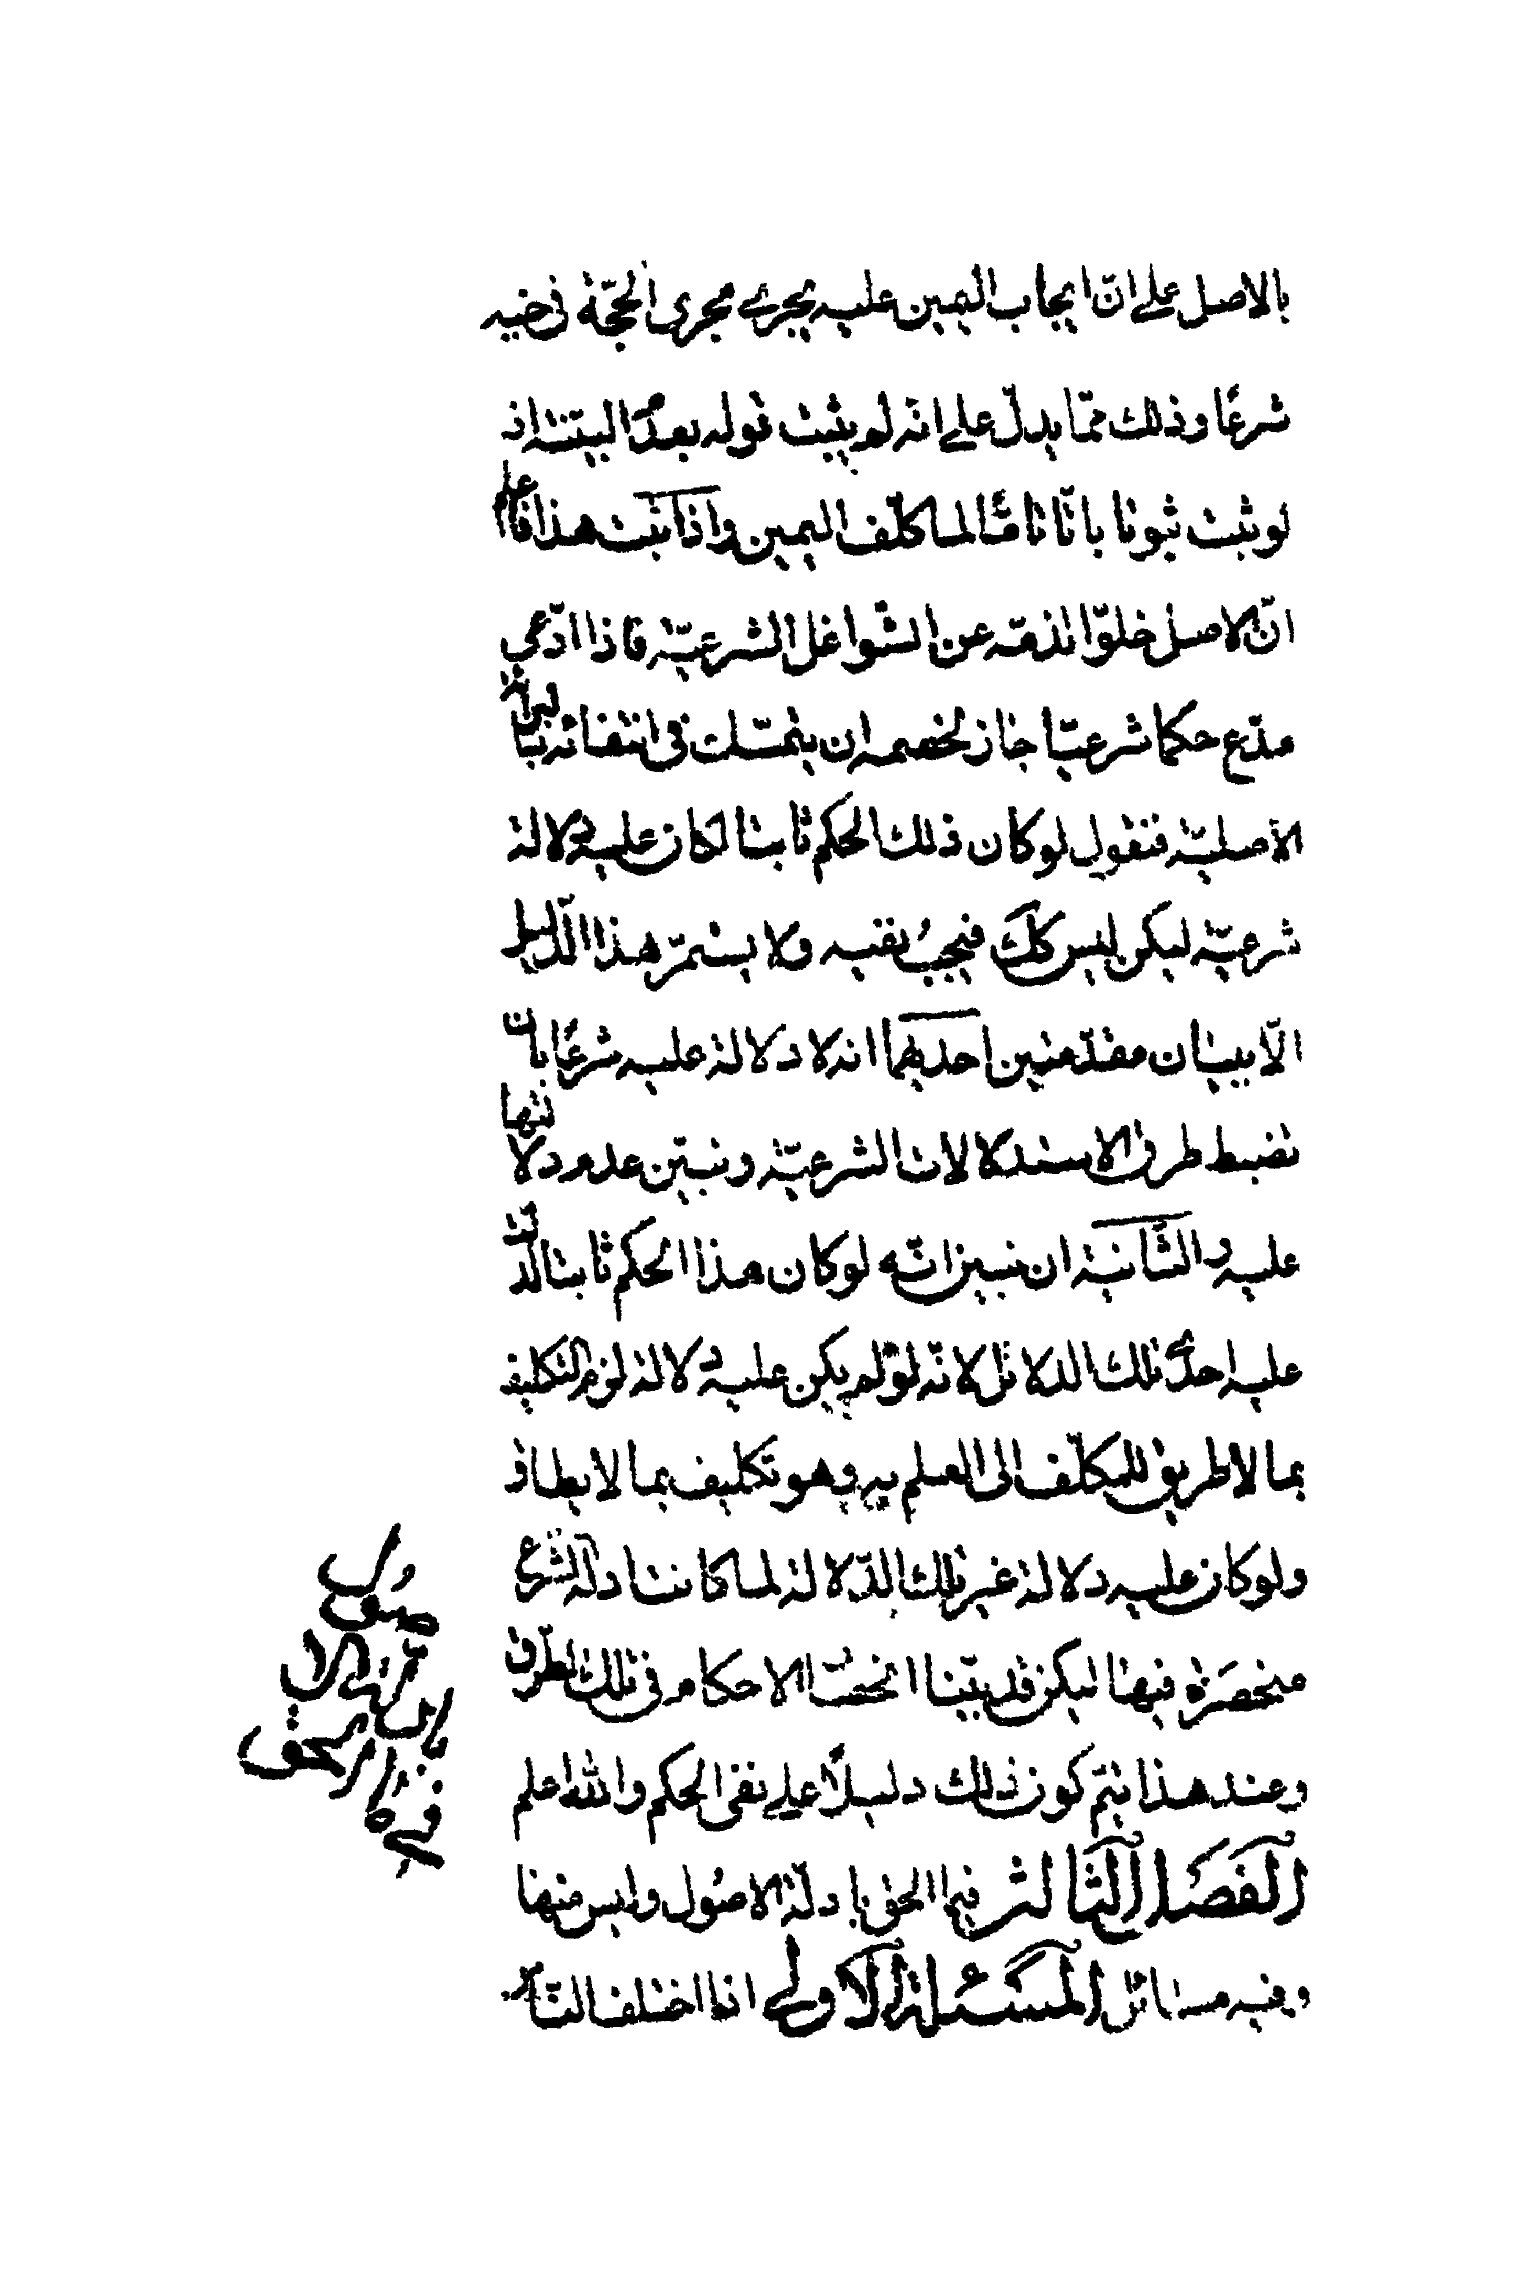 بالاصل على ان ايجاب اليمين عليه يجرى مجرى الحجة فى حقه
شرعًا وذلك ممّا يدلّ على انه لم يثبت قوله بعد البينة اذ
لو ثبت ثبوتا باتّا تامّا لما كلّف اليمين واذا ثبت هذا فاعلم
انّ الاصل خلوّ الذمّة عن الشّواغل الشرعيّة فاذا ادّعى
مدّع حكما شرعيّا جاز لخصمه ان يتمسّك فى انتفائه بالبرائة
الاصليّة فنقول لو كان ذلك الحكم ثابتا لكان عليه دلالة
شرعيّة ليكن ليس كك فيجب نفيه ولا يستمرّ هذا الدّليل
الّا ببيان مقدّمتين احديهما انه لا دلالة عليه شرعًا بان
نضبط طرق الاستدلالات الشرعيّة ونبيّن عدم دلالتها
عليه والثّانية ان نبين انّه لو كان هذا الحكم ثابتا لدلّت
عليه احدى تلك الدلائل لانّه لو لم يكن عليه دلالة لزم التكليف
بما لا طريق للمكلّف الى العلم به وهو تكليف بما لا يطاق
ولو كان عليه دلالة غير تلك الدّلالة لما كانت ادلّة الشرع
منحصرة فيها ليكن قد بيّنا انحصار الاحكام فى تلك الطرق
وعند هذا يتم كون ذلك دليلًا على نفى الحكم والله اعلم
الفصل الثالث فيما الحق بادلّة الاصول وليس منها
وفيه مسائل المسئلة الاولى اذا اختلف النّاس
فى ما الحق
بادلّة الا
صول